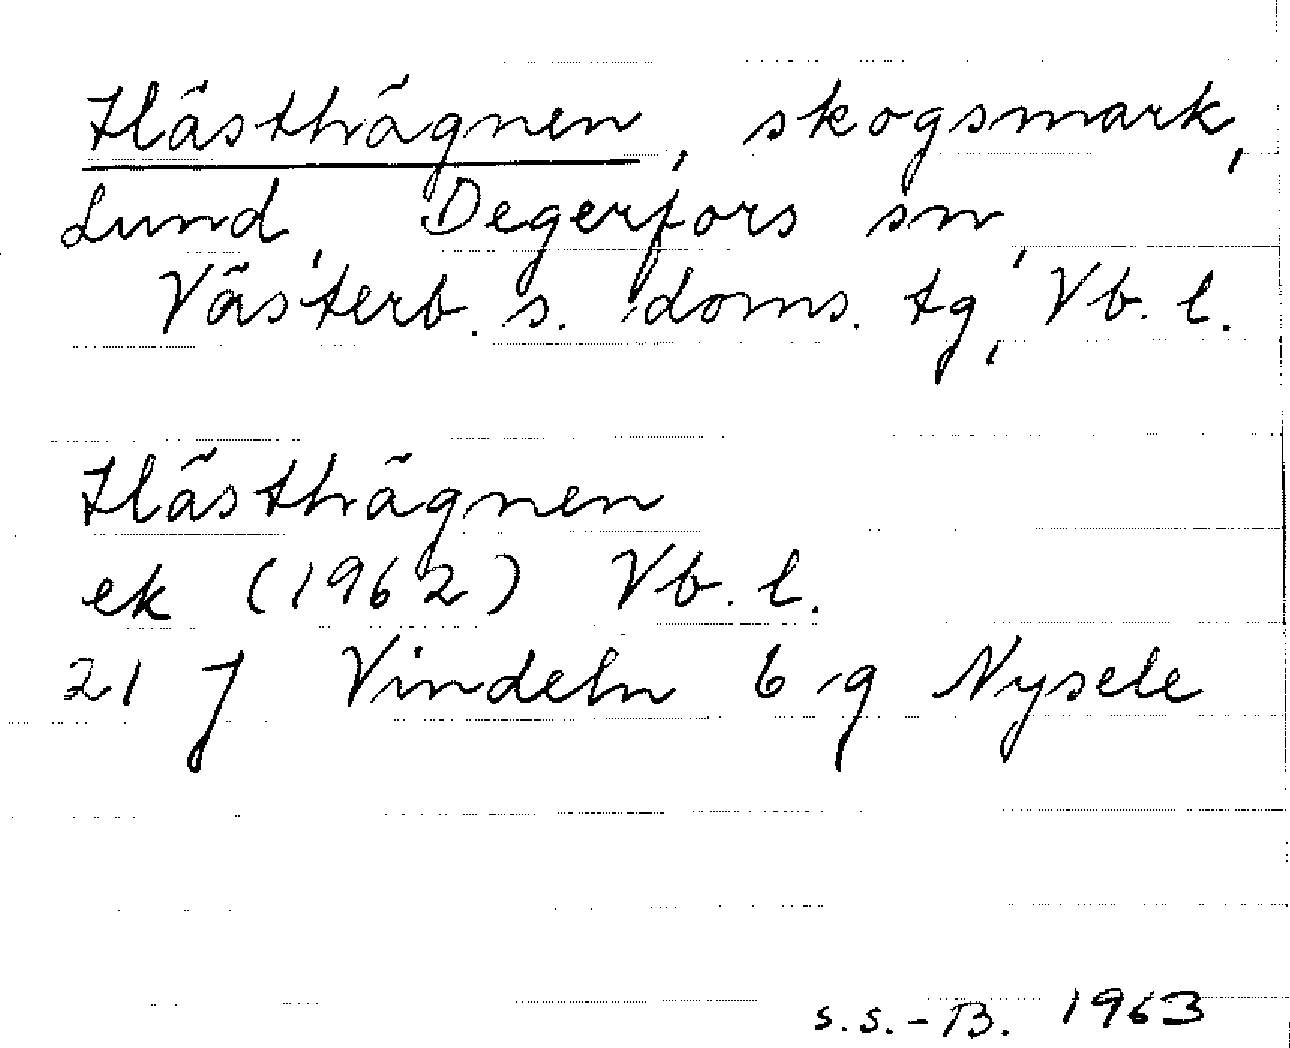 Hästhägnen, skogsmark,
Lund, Degerfors sn,
Västerb. s. doms. tg, Vb. l.
Hästhägnen
ek (1962) Vb. l.
21 J Vindeln 6 g Nysele
S.S.-B. 1963